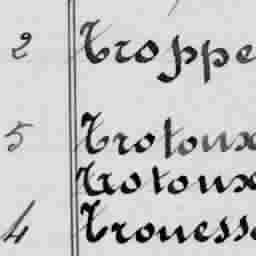 2 Troppe
5 Trotoux
Trotoux
4 Troness